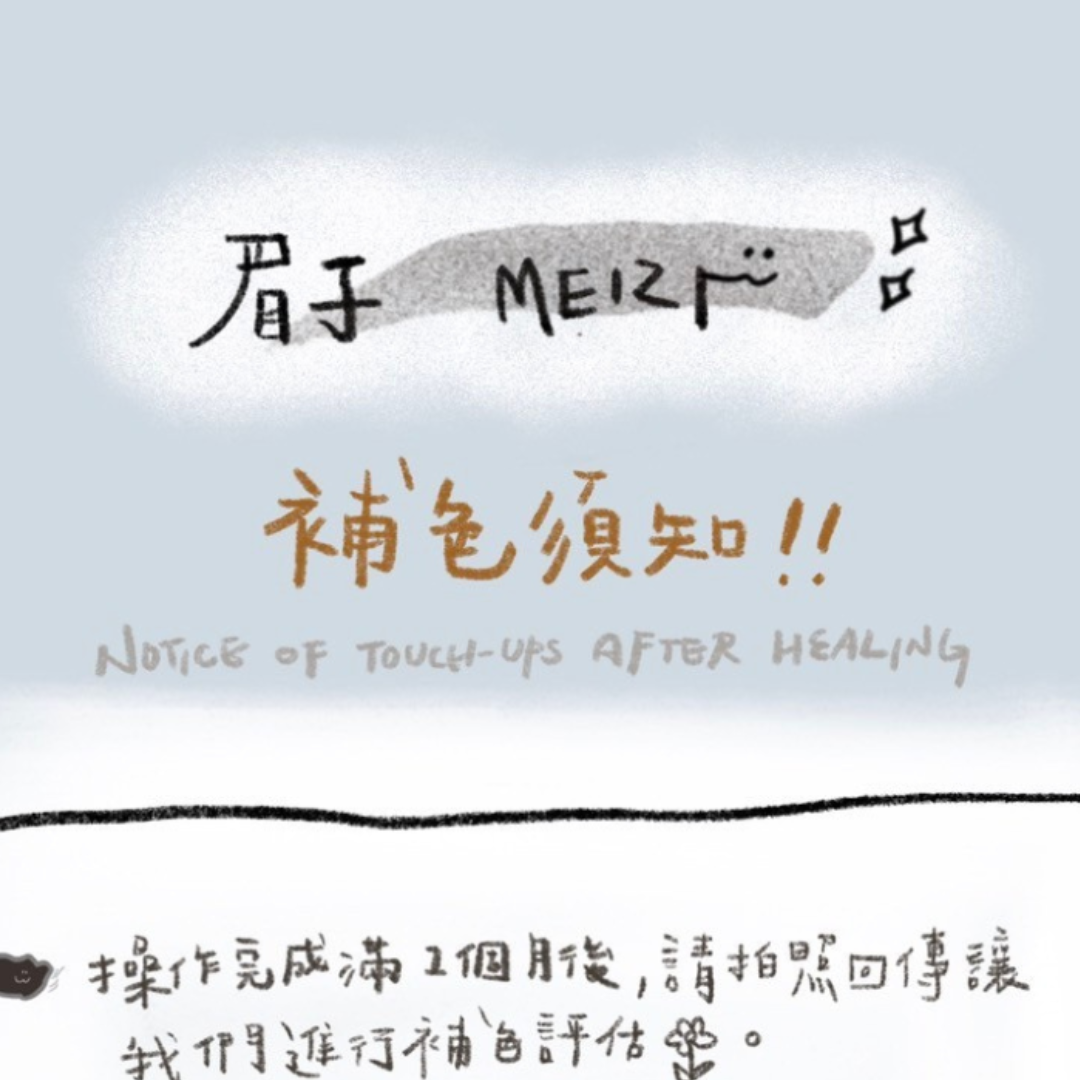 眉子 MEIZI
補色須知!!
NOTICE OF TOUCH-UPS AFTER HEALING
操作完成滿1個月後,請拍照回傳讓
我們進行補色評估。